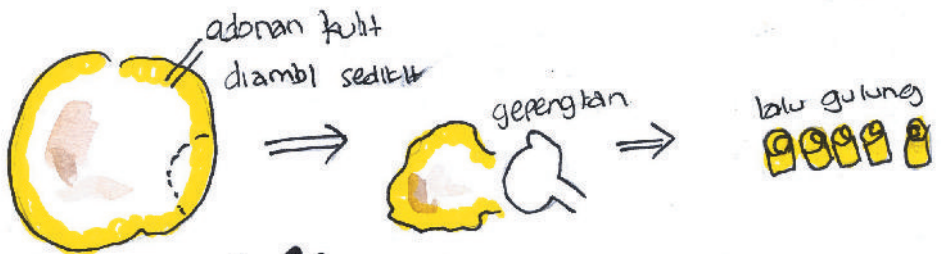 adonan kulit
diambl sedikit
gepengkan
lalu gulung